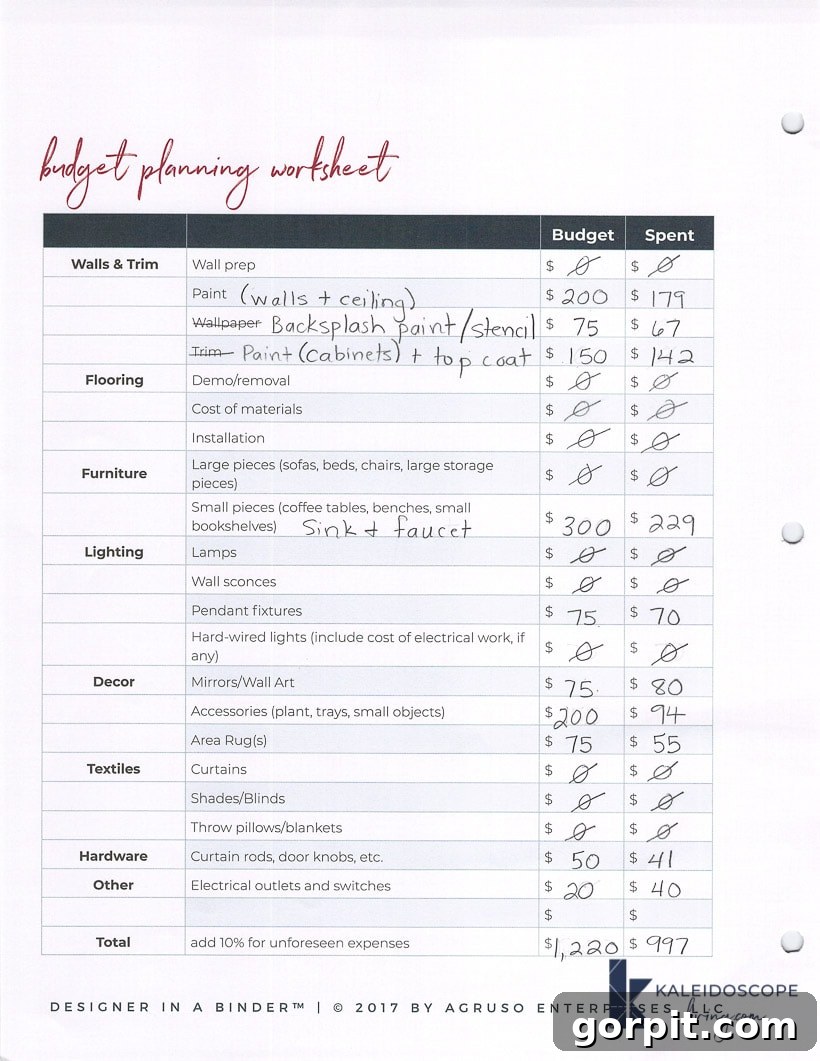 budget planning worksheet
Budget Spent
Walls & Trim Wall prep $ 0 $ 0
Paint (walls + ceiling) $ 200 $ 179
Wallpaper Backsplash paint/stencil $ 75 $ 67
Trim Paint (cabinets) + top coat $ 150 $ 142
Flooring Demo/removal $ 0 $ 0
Cost of materials $ 0 $ 0
Installation $ 0 $ 0
Furniture Large pieces (sofas, beds, chairs, large storage
pieces) $ 0 $ 0
Small pieces (coffee tables, benches, small
bookshelves) Sink + faucet $ 300 $ 229
Lighting Lamps $ 0 $ 0
Wall sconces $ 0 $ 0
Pendant fixtures $ 75 $ 70
Hard-wired lights (include cost of electrical work, if
any) $ 0 $ 0
Decor Mirrors/Wall Art $ 75 $ 80
Accessories (plant, trays, small objects) $ 200 $ 94
Area Rug(s) $ 75 $ 55
Textiles Curtains $ 0 $ 0
Shades/Blinds $ 0 $ 0
Throw pillows/blankets $ 0 $ 0
Hardware Curtain rods, door knobs, etc. $ 50 $ 41
Other Electrical outlets and switches $ 20 $ 40
$ $
Total add 10% for unforeseen expenses $1,220 $ 997
KALEIDOSCOPE
living.com
DESIGNER IN A BINDER™ | © 2017 BY AGRUSO ENTERPRISES LLC
gorpit.com